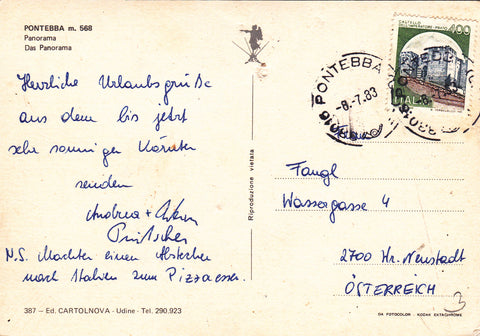 PONTEBBA m. 568
Panorama
Das Panorama
Herzliche Urlaubsgrüße
aus dem bis jetzt
sehr sonnigen Kärnten
senden
Andrea +
N.S. Machten einen Abstecher
nach Italien zum Pizzaessen.
387 - Ed. CARTOLNOVA - Udine - Tel. 290.923
Riproduzione vietata
CASTELLO
DELL'IMPERATORE - PRATO
400
ITALIA
33016 PONTEBBA
-8.-7.83
Fangl
Wassergasse 4
2700 Wr. Neustadt
ÖSTERREICH
3
DA FOTOCOLOR - KODAK EKTACHROME